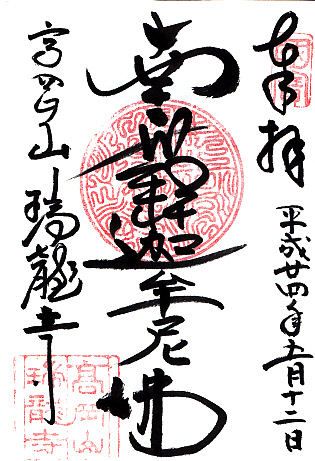 奉拝
平成廿四年五月十二日
南無釋迦牟尼佛
高岡山瑞龍寺
高岡山
瑞龍寺